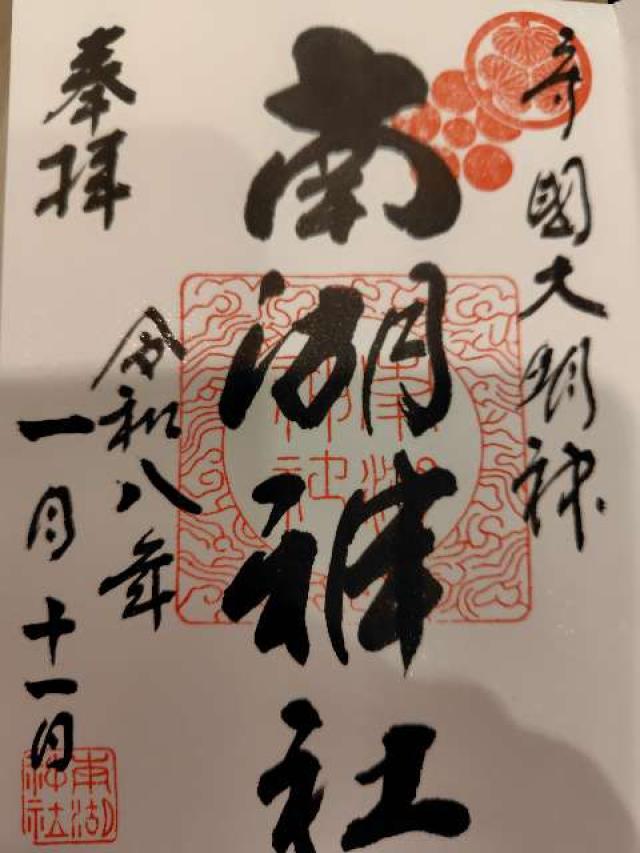 守國大明神
南湖神社
奉拝
令和八年
一月十一日
南湖
神社
南湖
神社